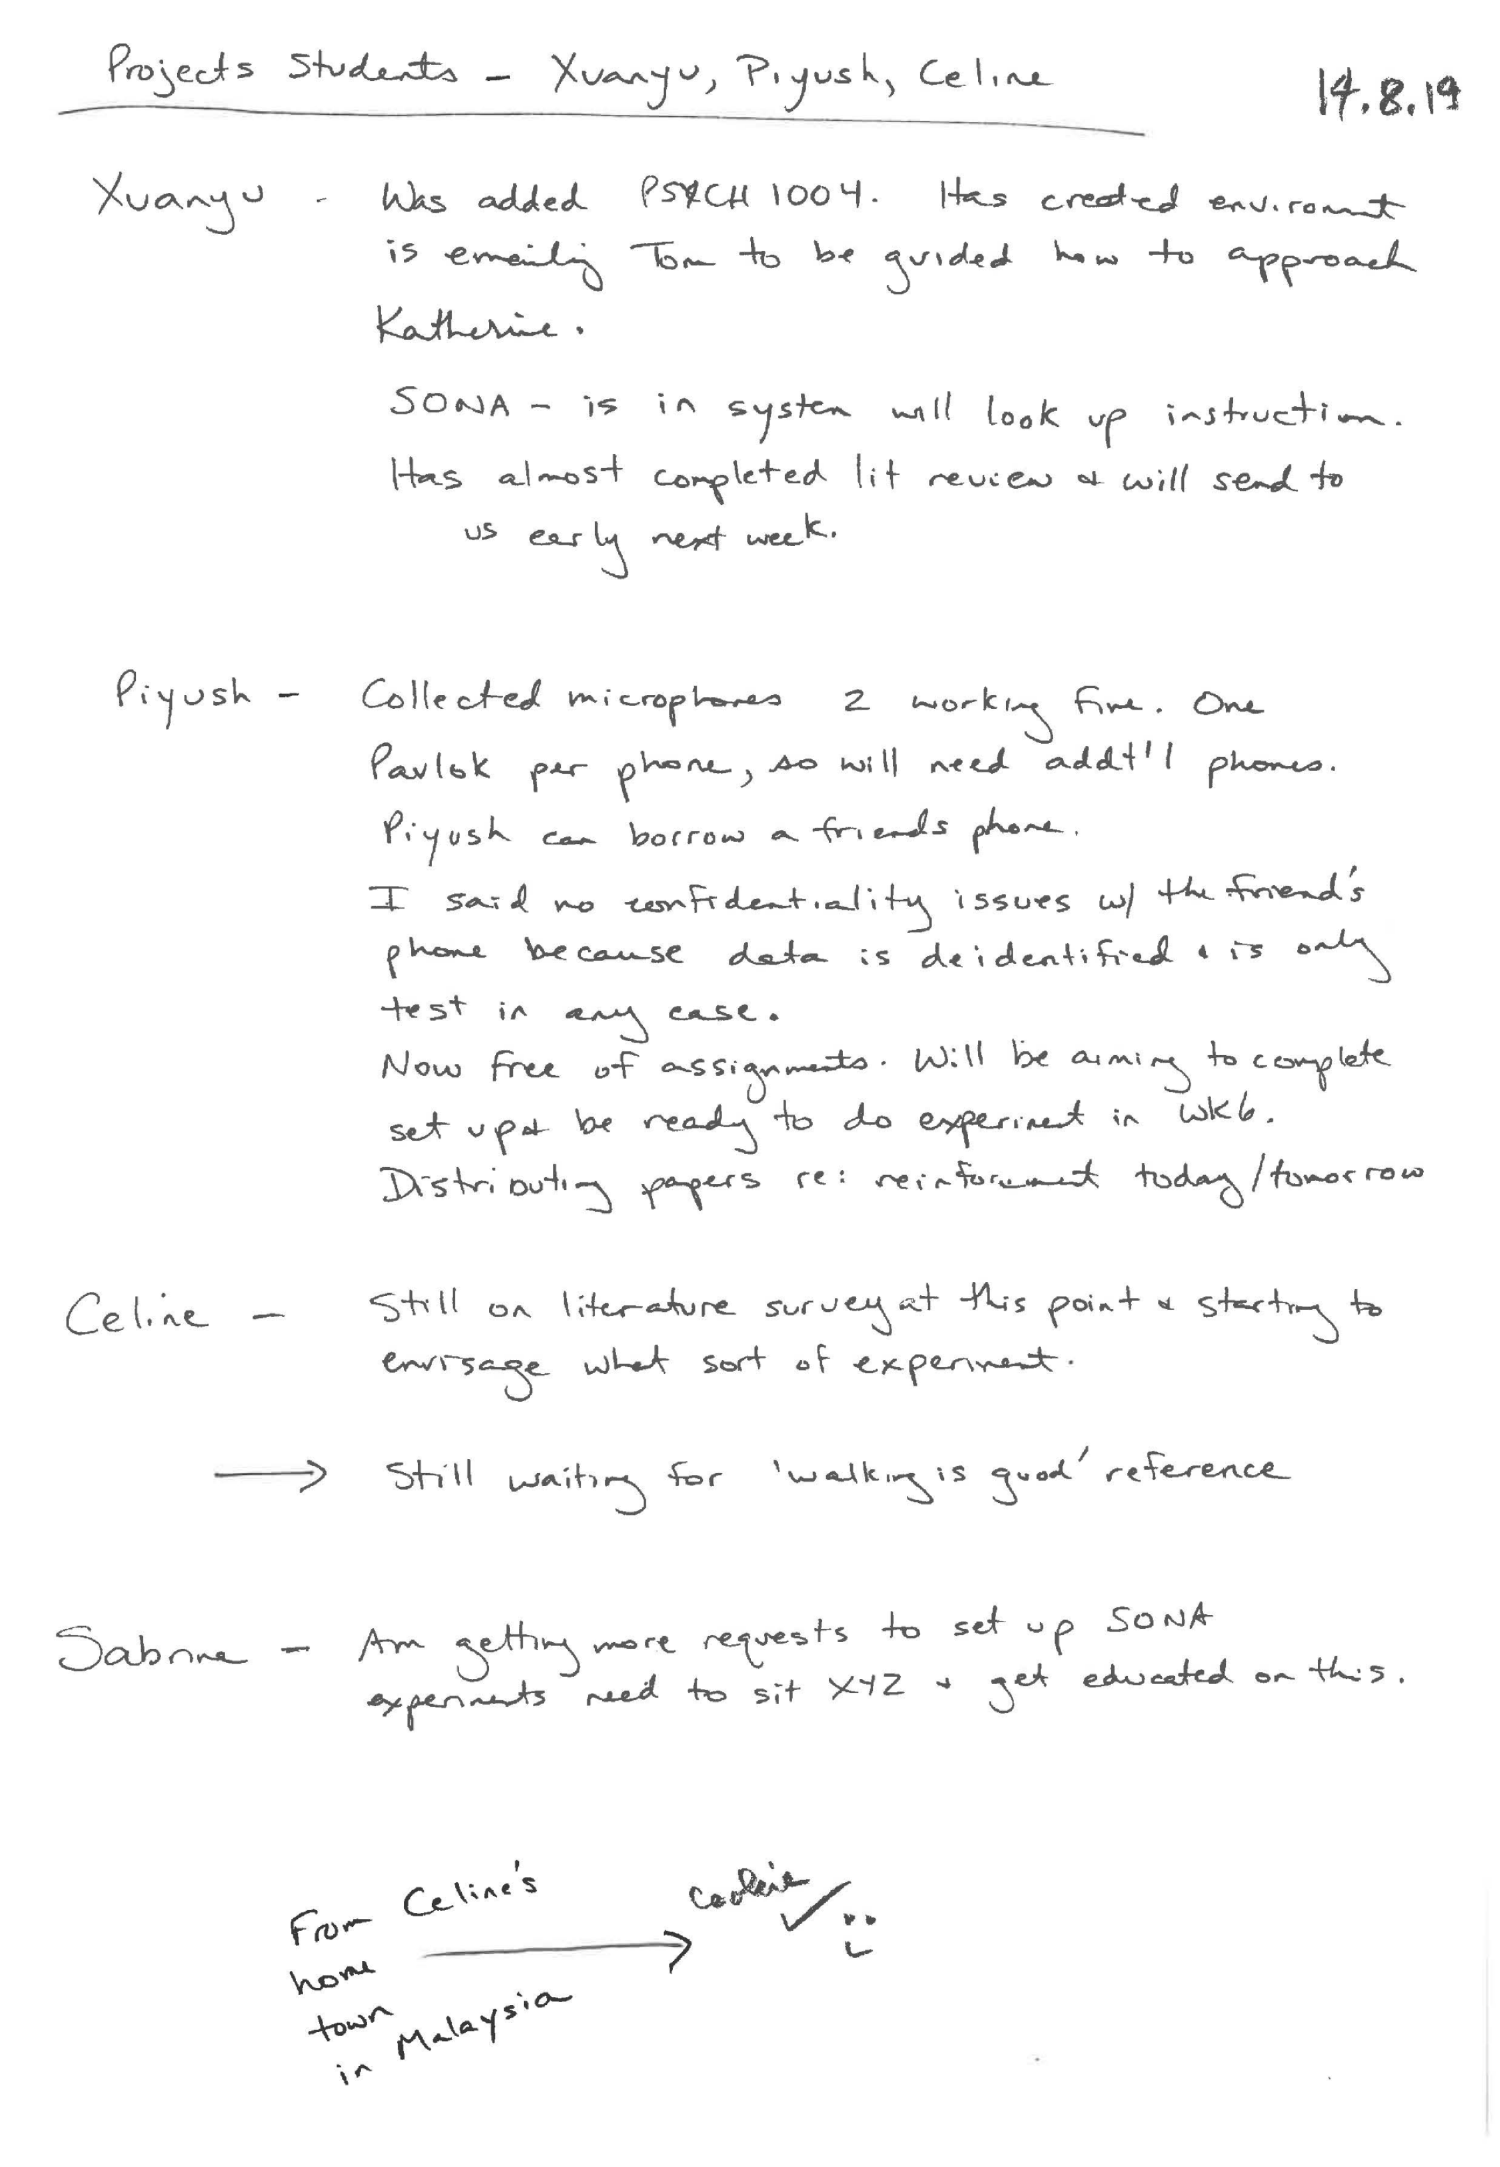 Projects Students - Xuanyu, Piyush, Celine
14.8.19
Xuanyu - Was added PSYCH 1004. Has created enviromnt
is emailing Tom to be guided how to approach
Katherine.
SONA - is in system will look up instruction.
Has almost completed lit review & will send to
us early next week.
Piyush - Collected microphones 2 working fine. One
Pavlok per phone, so will need addt'l phones.
Piyush can borrow a friends phone.
I said no confidentiality issues w/ the friend's
phone because data is deidentified & is only
test in any case.
Now free of assignments. Will be aiming to complete
set up & be ready to do experiment in wk6.
Distributing papers re: reinforcement today/tomorrow
Celine - Still on literature survey at this point & starting to
envisage what sort of experiment.
→ Still waiting for 'walking is good' reference
Sabrina - Am getting more requests to set up SONA
experiments need to sit XYZ & get educated on this.
From Celine's
home
town
in Malaysia
→ cookie ✓